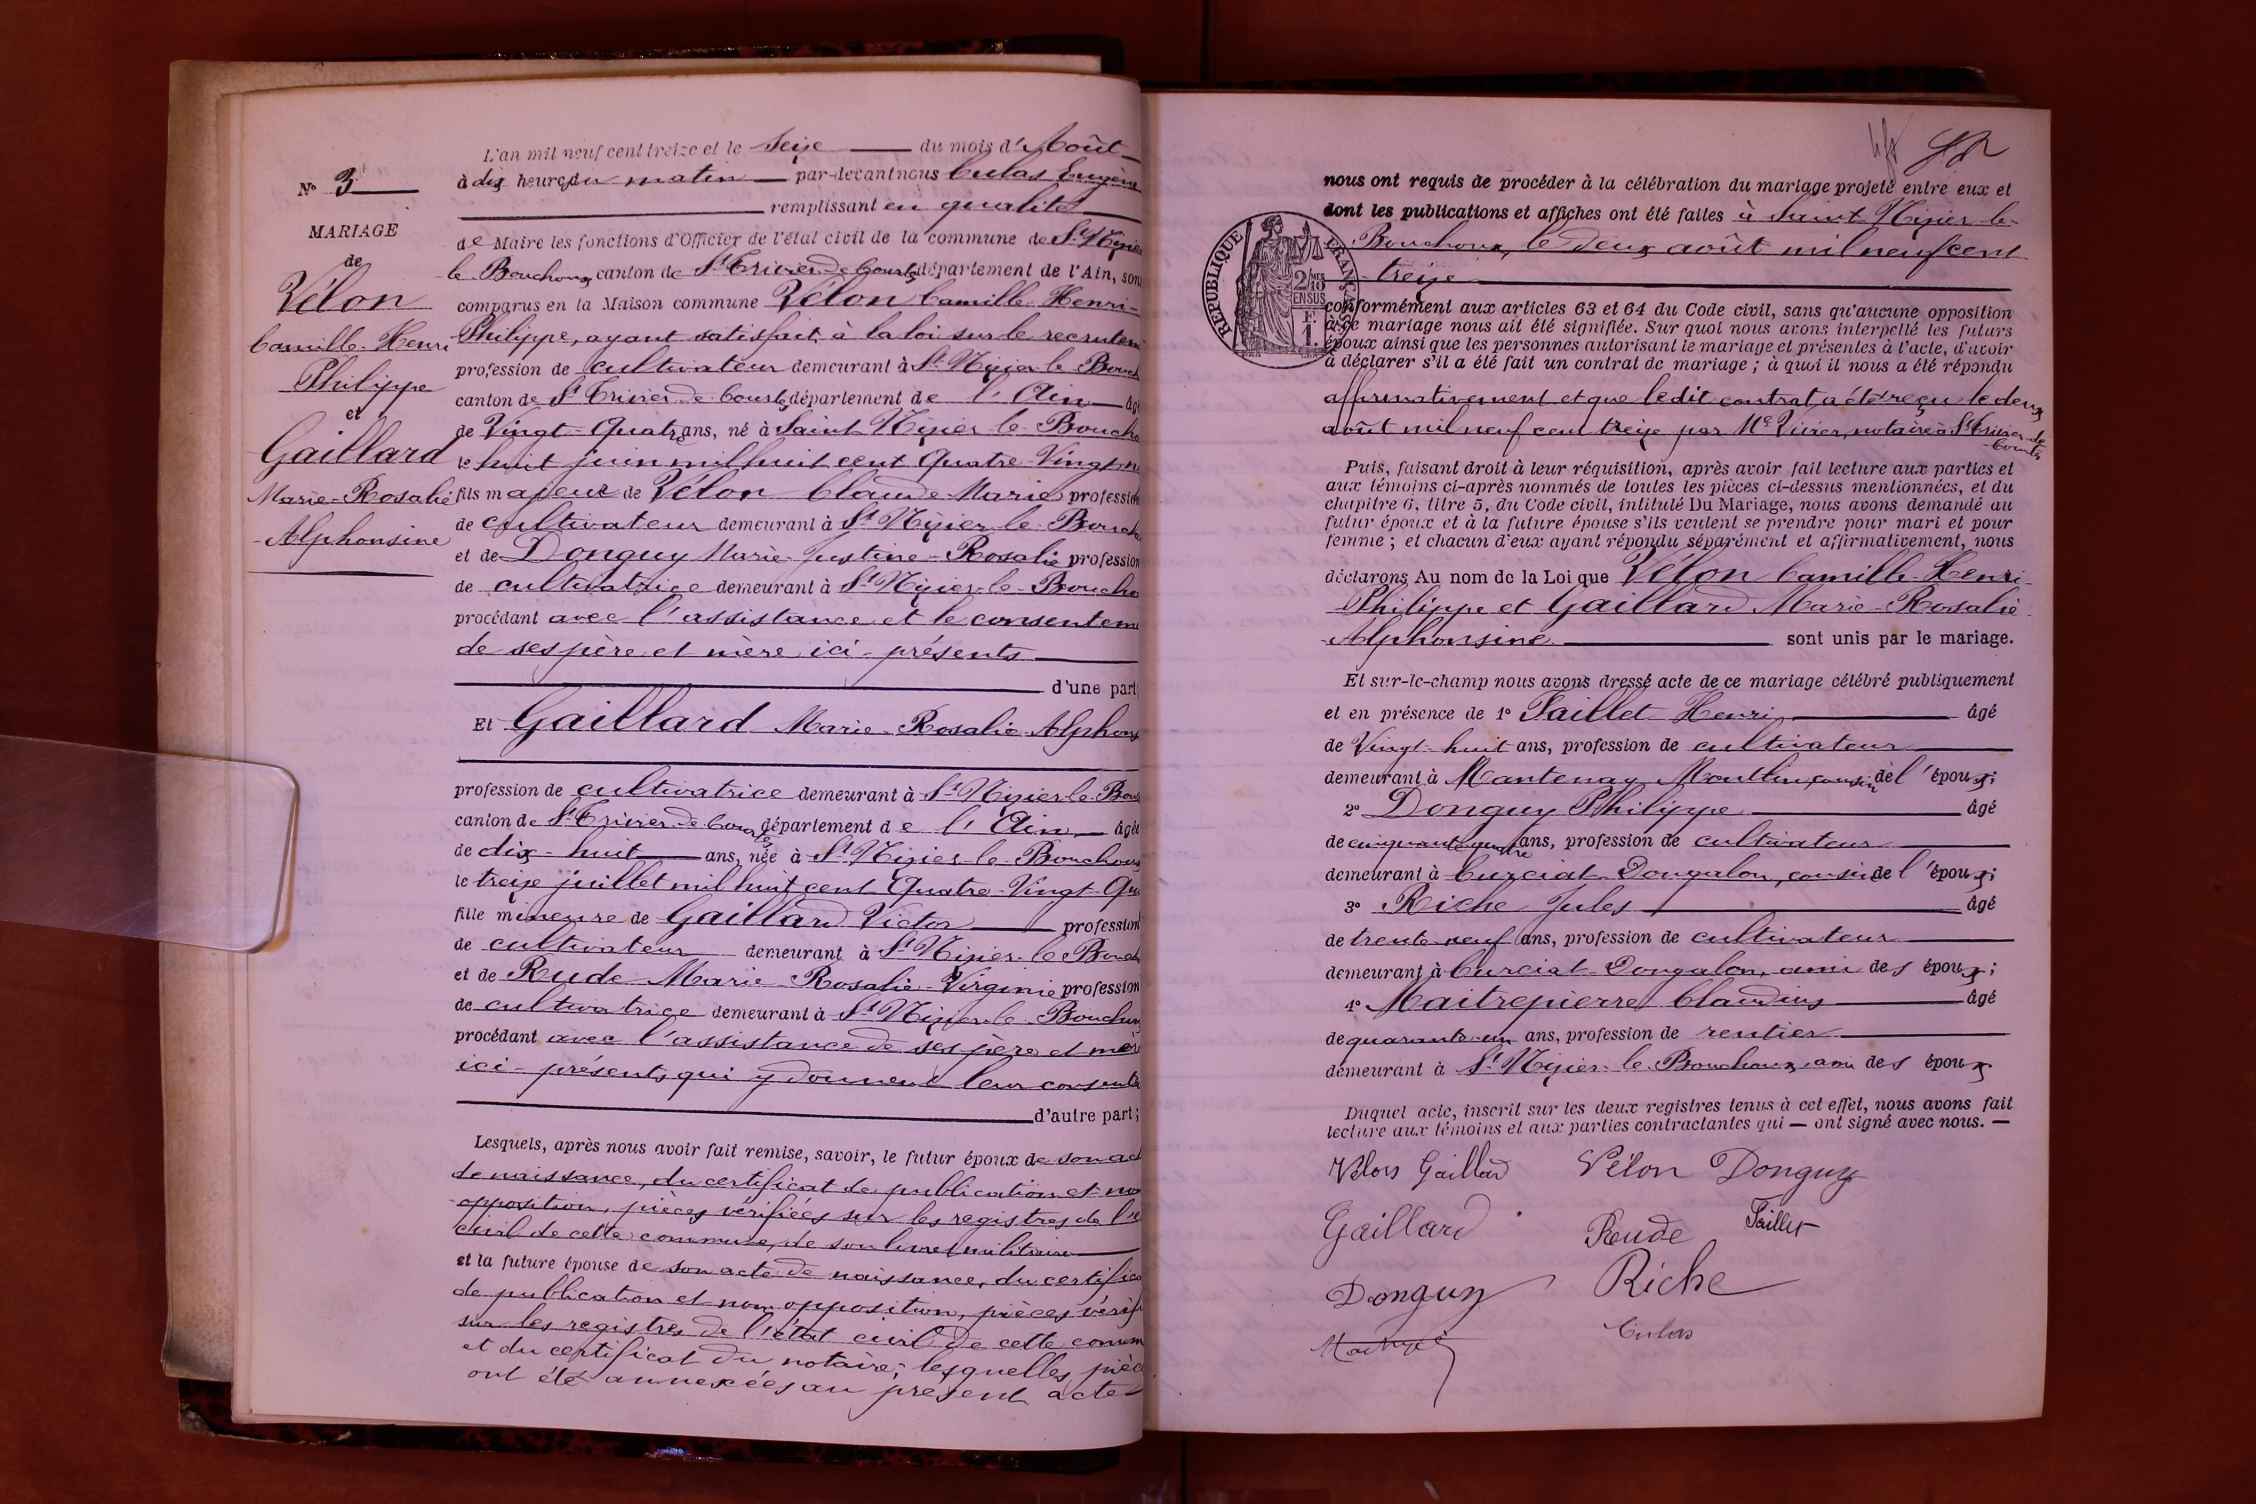 L'an mil neuf cent treize et le Seize du mois d'Août
à dix heures du matin par-devant nous Culas Eugène
remplissant en qualité
de Maire les fonctions d'Officier de l'état civil de la commune de St Nizier
le Bouchoux canton de St Trivier de Courtes département de l'Ain, son
comparus en la Maison commune Vélon Camille Henri-
Philippe, ayant satisfait à la loi sur le recrutem
profession de cultivateur demeurant à St Nizier le Bouch
canton de St Trivier de Courtes département de l'Ain âgé
de Vingt-Quatre ans, né à Saint Nizier-le-Boucho
le huit juin mil huit cent Quatre-Vingt-ne
fils majeur de Vélon Claude-Marie profession
de cultivateur demeurant à St Nizier-le-Boucho
et de Donguy Marie-Justine-Rosalie profession
de cultivatrice demeurant à St Nizier-le-Boucho
procédant avec l'assistance et le consenteme
de ses père et mère ici-présents
d'une part
Et Gaillard Marie-Rosalie-Alphons
profession de cultivatrice demeurant à St Nizier-le-Bou
canton de St Trivier de Courtes département de l'Ain âgée
de dix-huit ans, née à St Nizier-le-Bouchoux
le treize juillet mil huit cent Quatre-Vingt-Qu
fille mineure de Gaillard Victor profession
de cultivateur demeurant à St Nizier-le-Bouch
et de Rude Marie-Rosalie-Virginie profession
de cultivatrice demeurant à St Nizier-le-Bouchou
procédant avec l'assistance de ses père et mère
ici-présents qui y donnent leur consente
d'autre part;
Lesquels, après nous avoir fait remise, savoir, le futur époux de son act
de naissance, du certificat de publication et non
opposition, pièces vérifiées sur les registres de l'é
civil de cette commune, de son livret militaire
et la future épouse de son acte de naissance, du certifica
de publication et non opposition, pièces vérifi
sur les registres de l'état civil de cette commu
et du certificat du notaire; lesquelles pièc
ont été annexées au présent acte
N° 3
MARIAGE
de
Vélon
Camille-Henri
Philippe
et
Gaillard
Marie-Rosalie
-Alphonsine
nous ont requis de procéder à la célébration du mariage projeté entre eux et
dont les publications et affiches ont été faites à Saint Nizier-le-
Bouchoux, le deux août mil neuf cent
treize
RÉPUBLIQUE FRANÇAISE
2/10 MES
EN SUS
E
1.
conformément aux articles 63 et 64 du Code civil, sans qu'aucune opposition
à ce mariage nous ait été signifiée. Sur quoi nous avons interpellé les futurs
époux ainsi que les personnes autorisant le mariage et présentes à l'acte, d'avoir
à déclarer s'il a été fait un contrat de mariage; à quoi il nous a été répondu
affirmativement et que le dit contrat a été reçu le deux
août mil neuf cent treize par Me Vivier, notaire à St Trivier-de
Courtes
Puis, faisant droit à leur réquisition, après avoir fait lecture aux parties et
aux témoins ci-après nommés de toutes les pièces ci-dessus mentionnées, et du
chapitre 6, titre 5, du Code civil, intitulé Du Mariage, nous avons demandé au
futur époux et à la future épouse s'ils veulent se prendre pour mari et pour
femme; et chacun d'eux ayant répondu séparément et affirmativement, nous
déclarons Au nom de la Loi que Vélon Camille-Henri-
Philippe et Gaillard Marie-Rosalie-
Alphonsine sont unis par le mariage.
Et sur-le-champ nous avons dressé acte de ce mariage célébré publiquement
et en présence de 1° Paillet Henri âgé
de Vingt-huit ans, profession de cultivateur
demeurant à Mantenay Montlin, cousin de l'époux;
2° Donguy Philippe âgé
de cinquante quatre ans, profession de cultivateur
demeurant à Curciat Dongalon, cousin de l'époux;
3° Riche Jules âgé
de trente neuf ans, profession de cultivateur
demeurant à Curciat-Dongalon, ami des époux;
4° Maitrepierre Claudius âgé
de quarante-un ans, profession de rentier
demeurant à St Nizier-le-Bouchoux, ami des époux
Duquel acte, inscrit sur les deux registres tenus à cet effet, nous avons fait
lecture aux témoins et aux parties contractantes qui — ont signé avec nous. —
Vélon Gaillard Vélon Donguy
Gaillard Rude Paillet
Donguy Riche
Culas